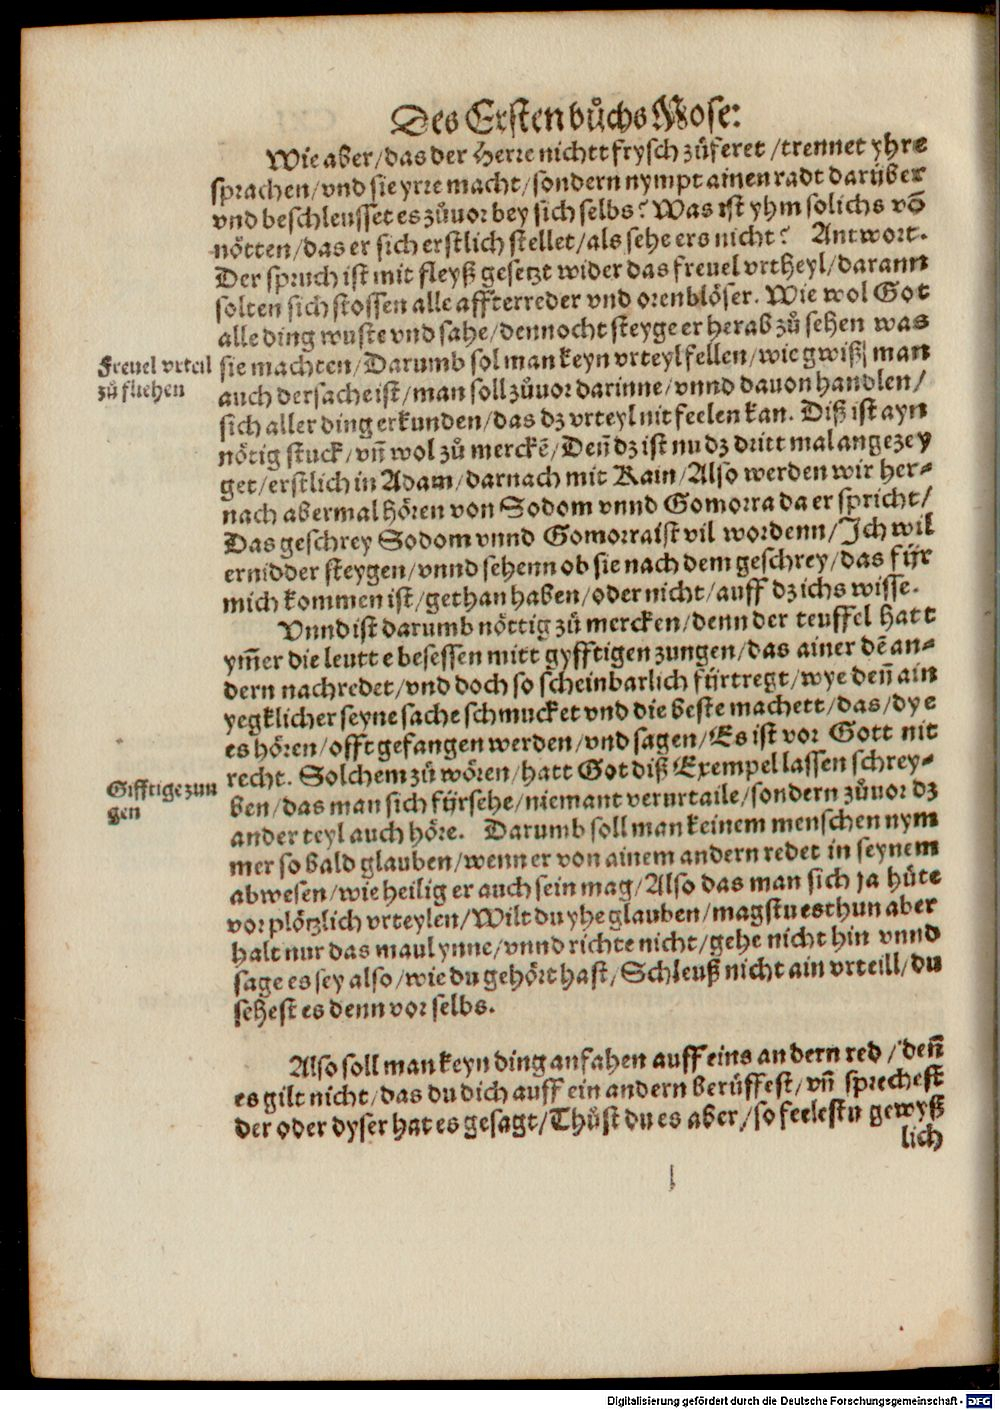 Des Ersten bůchs Mose:
Wie aber/das der Herre nichtt frysch zůferet/trennet yhre
sprachen/vnd sie yrre macht/sondern nympt ainen radt darüber
vnd beschleusset es zůuor bey sich selbs? Was ist yhm solichs võ
nötten/das er sich erstlich stellet/als sehe ers nicht? Antwort.
Der spruch ist mit fleyß gesetzt wider das freuel vrtheyl/darann
solten sich stossen alle affterreder vnd orenblöser. Wie wol Got
alle ding wuste vnd sahe/dennocht steyge er herab zů sehen was
Freuel vrteil
zů fliehen
sie machten/Darumb sol man keyn vrteyl fellen/wie gwiß man
auch der sache ist/man soll zůuor darinne/vnnd dauon handlen/
sich aller ding erkunden/das dz vrteyl nit feelen kan. Diß ist ayn
nötig stuck/vñ wol zů merckẽ/Deñ dz ist nu dz dritt mal angezey
get/erstlich in Adam/darnach mit Kain/Also werden wir her-
nach abermal hören von Sodom vnnd Gomorra da er spricht/
Das geschrey Sodom vnnd Gomorra ist vil wordenn/Ich wil
ernidder steygen/vnnd sehenn ob sie nach dem geschrey/das für
mich kommen ist/gethan haben/oder nicht/auff dz ichs wisse.
Vnnd ist darumb nöttig zů mercken/denn der teuffel hatt
ym̃er die leutte besessen mitt gyfftigen zungen/das ainer dẽ an-
dern nachredet/vnd doch so scheinbarlich fürtregt/wye deñ ain
yegklicher seyne sache schmucket vnd die beste machett/das/dye
es hören/offt gefangen werden/vnd sagen/Es ist vor Gott nit
Gifftige zun
gen
recht. Solchem zů wören/hatt Got diß Exempel lassen schrey-
ben/das man sich fürsehe/niemant verurtaile/sondern zůuor dz
ander teyl auch höre. Darumb soll man keinem menschen nym
mer so bald glauben/wenn er von ainem andern redet in seynem
abwesen/wie heilig er auch sein mag/Also das man sich ja hüte
vor plötzlich vrteylen/Wilt du yhe glauben/magstu es thun aber
halt nur das maul ynne/vnnd richte nicht/gehe nicht hin vnnd
sage es sey also/wie du gehört hast/Schleuß nicht ain vrteill/du
sehest es denn vor selbs.
Also soll man keyn ding anfahen auff eins andern red/deñ
es gilt nicht/das du dich auff ein andern berüffest/vñ sprechest
der oder dyser hat es gesagt/Thůst du es aber/so feelestu gewyß
lich
Digitalisierung gefördert durch die Deutsche Forschungsgemeinschaft - DFG